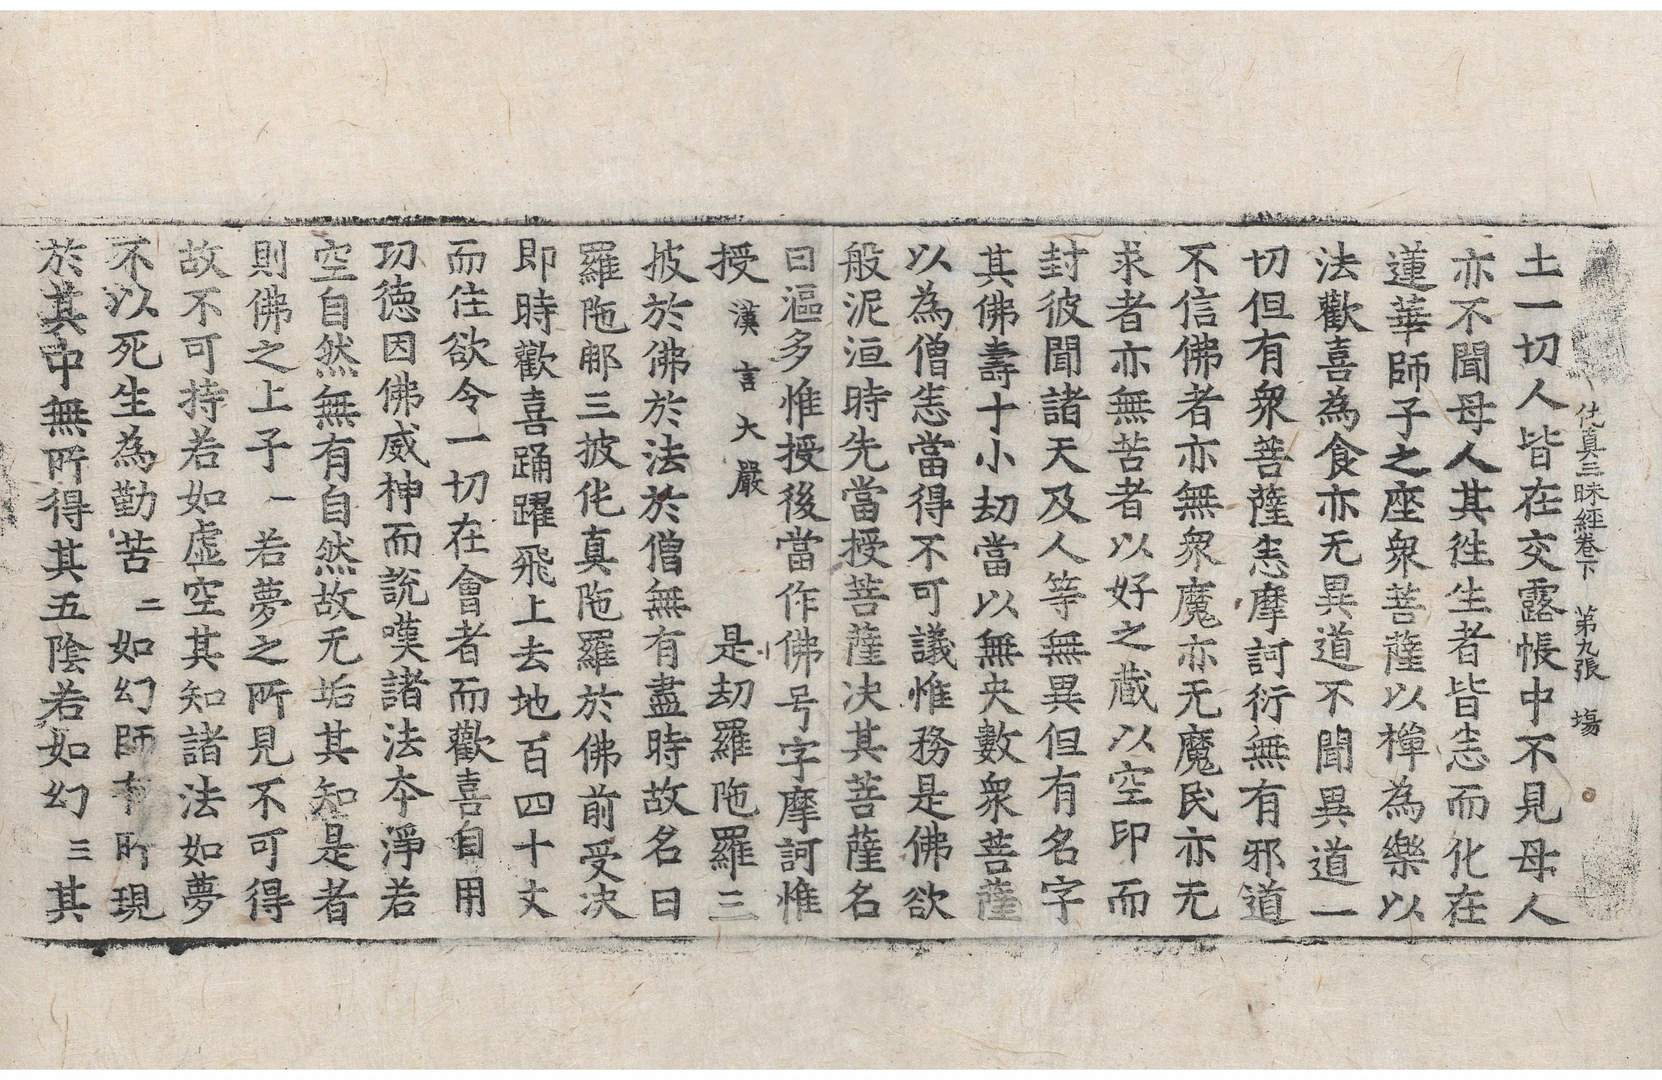 伅真三昧經卷下　第九張　塲
土一切人皆在交露帳中不見母人
亦不聞母人其徃生者皆悉而化在
蓮華師子之座衆菩薩以禪為樂以
法歡喜為食亦无異道不聞異道一
切但有衆菩薩悉摩訶衍無有邪道
不信佛者亦無衆魔亦无魔民亦无
求者亦無苦者以好之藏以空印而
封彼聞諸天及人等無異但有名字
其佛壽十小劫當以無央數衆菩薩
以為僧悉當得不可議惟務是佛欲
般泥洹時先當授菩薩决其菩薩名
曰漚多惟授後當作佛号字摩訶惟
授 漢言大嚴 是劫羅陁羅三
披於佛於法於僧無有盡時故名曰
羅陁那三披伅真陁羅於佛前受决
即時歡喜踊躍飛上去地百四十丈
而住欲令一切在會者而歡喜自用
功德因佛威神而說嘆諸法本淨若
空自然無有自然故无垢其知是者
則佛之上子 一 若夢之所見不可得
故不可持若如虛空其知諸法如夢
不以死生為勤苦 二 如幻師有所現
於其中無所得其五陰若如幻 三 其